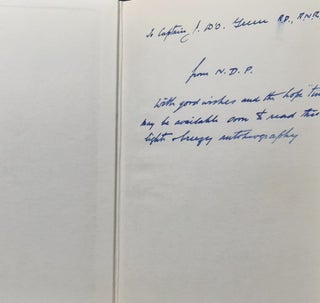 To Captain J. D'O. Green R.D., R.N.R
from N.D.P.
With good wishes and the hope
may be available even to read this
light & breezy autobiography